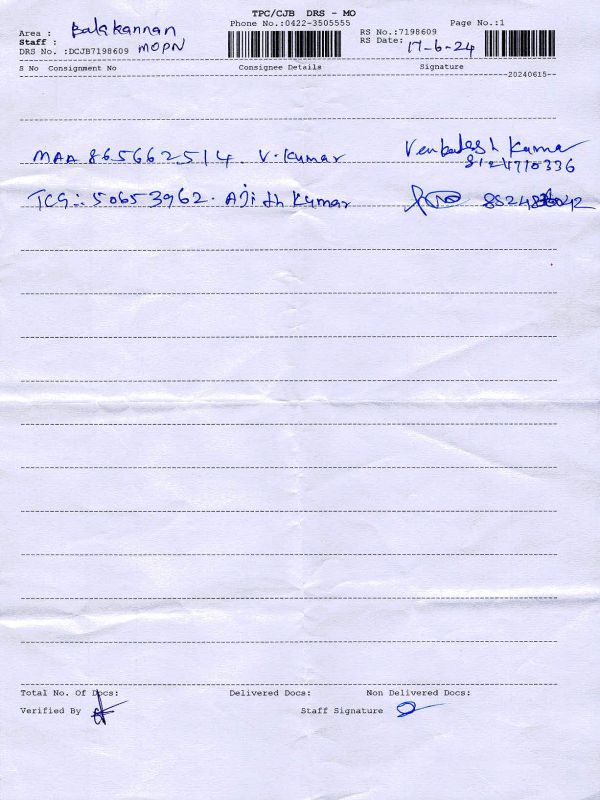 TPC/CJB DRS - MO
Phone No.:0422-3505555 Page No.:1
Area : Balakannan RS No.:7198609
Staff : RS Date: 17-6-24
DRS No. :DCJB7198609 MOPN
S No Consignment No Consignee Details Signature
20240615
MAA 865662514. V. Kumar Venkatesh Kumar
8124710336
TCG :- 50653962. Ajith Kumar
Total No. Of Docs: Delivered Docs: Non Delivered Docs:
Verified By Staff Signature